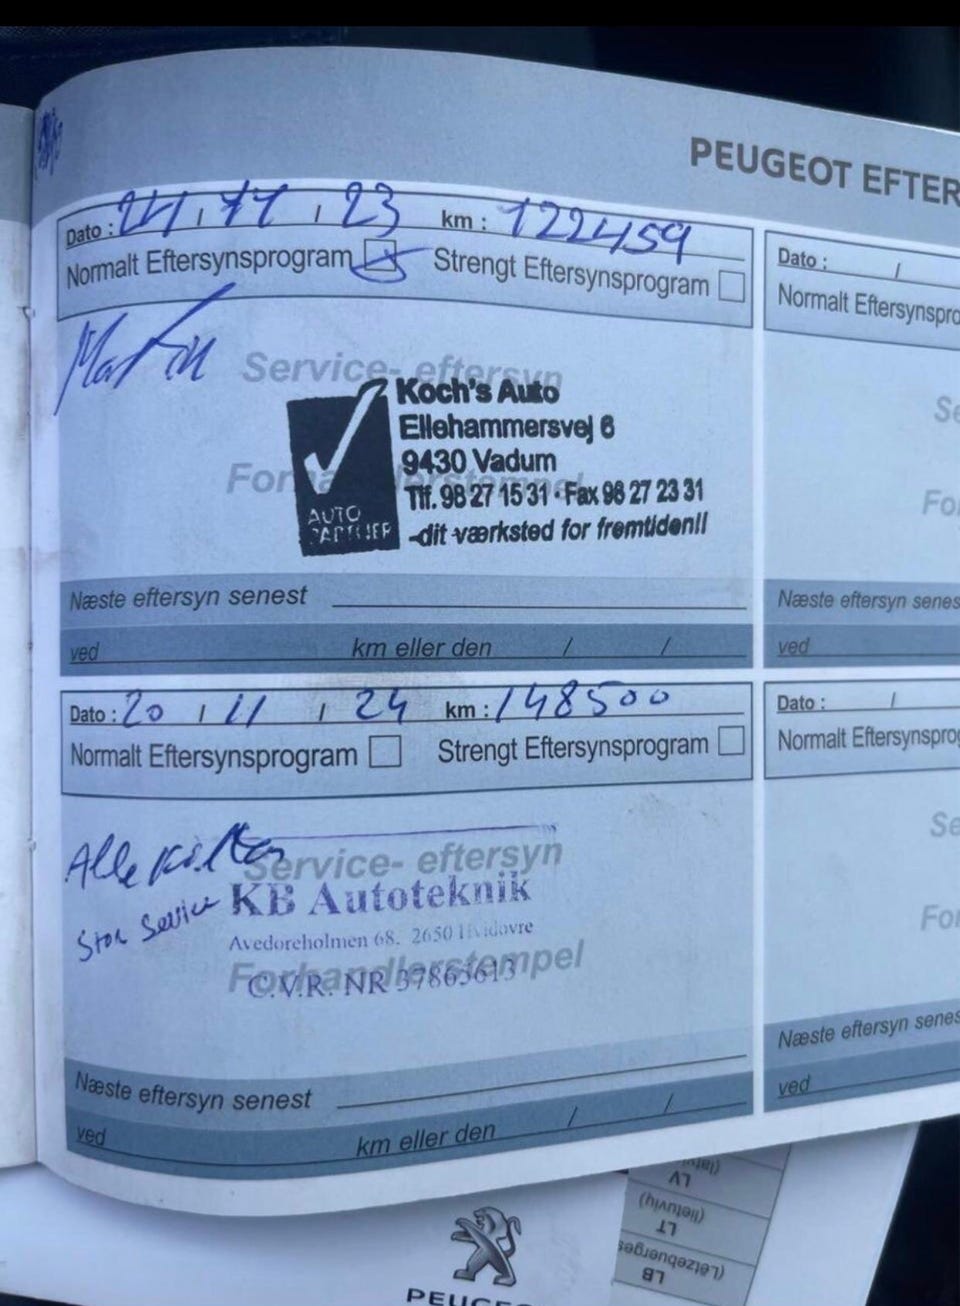 PEUGEOT EFTER
Dato : 24 / 11 / 23 km : 122459
Normalt Eftersynsprogram Strengt Eftersynsprogram
Martin
Service- eftersyn
Koch's Auto
Ellehammersvej 6
9430 Vadum
Tlf. 98 27 15 31 · Fax 98 27 23 31
-dit værksted for fremtiden!!
AUTO
PARTNER
Næste eftersyn senest
ved km eller den / /
Dato : 20 / 11 / 24 km : 148500
Normalt Eftersynsprogram Strengt Eftersynsprogram
Alle
Service- eftersyn
Stor Service
KB Autoteknik
Avedøreholmen 68. 2650 Hvidovre
Forhandlerstempel
C.V.R. NR 37863613
Næste eftersyn senest
ved km eller den / /
Dato : /
Normalt Eftersynspro
Se
Fo
Næste eftersyn senest
ved
Dato : /
Normalt Eftersynsprog
Se
Fo
Næste eftersyn senes
ved
LV
LT
(lietuvių)
LB
(Lëtzebuerges
PEUGEO